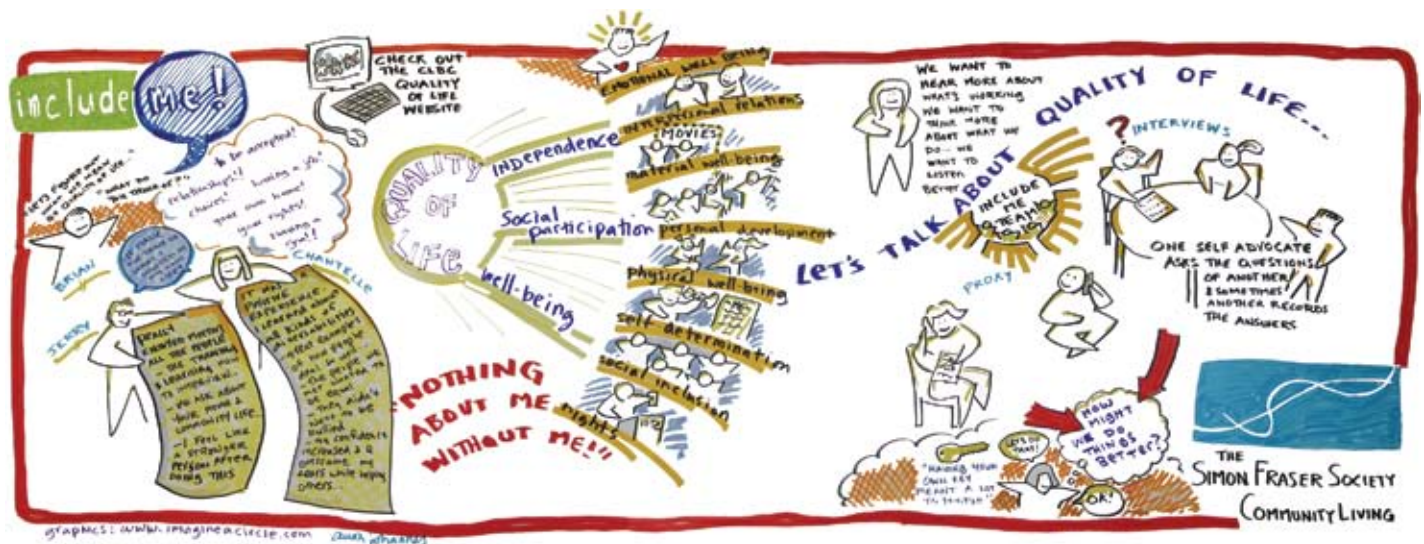 include me!
CHECK OUT
THE CLBC
QUALITY
OF LIFE
WEBSITE
to be accepted!
relationships!!
choices!
having a job!
your own home!
your rights!
having a
goal!!
BRIAN
CHANTELLE
JERRY
REALLY
ENJOYED MEETING
ALL THE PEOPLE
- THE TRAINING
& LEARNING HOW
TO INTERVIEW..
COMMUNITY LIFE...
- I FEEL LIKE
A STRONGER
PERSON AFTER
DOING THIS
IT WAS
EXPERIENCE.
LEARNED ABOUT
KINDS OF
DISABILITIES
- THE PEOPLE WE
MET WANTED TO
BE EQUAL
- THEY DIDN'T
WANT TO BE
BULLIED
- my confidence
increased & I
overcame my
fears while helping
others...
QUALITY
OF
LIFE
INDEPENDENCE
Social
participation
well-being
EMOTIONAL WELL BEING
INTERPERSONAL RELATIONS
MOVIES
material well-being
personal development
physical well-being
self determination
social inclusion
rights
"NOTHING
ABOUT ME
WITHOUT ME!!"
WE WANT TO
HEAR MORE ABOUT
WHAT'S WORKING
WE WANT TO
THINK MORE
ABOUT WHAT WE
DO... WE
WANT TO
LISTEN
BETTER
LET'S TALK ABOUT
QUALITY OF LIFE...
INCLUDE
ME
TEAM
?
INTERVIEWS
ONE SELF ADVOCATE
ASKS THE QUESTIONS
OF ANOTHER
& SOMETIMES
ANOTHER RECORDS
THE ANSWERS
PROXY
HOW
MIGHT
WE DO
THINGS
BETTER?
"HAVING YOUR
OWN KEY
MEANT A LOT
OK!
THE
SIMON FRASER SOCIETY
COMMUNITY LIVING
graphics: www.imagineacircle.com